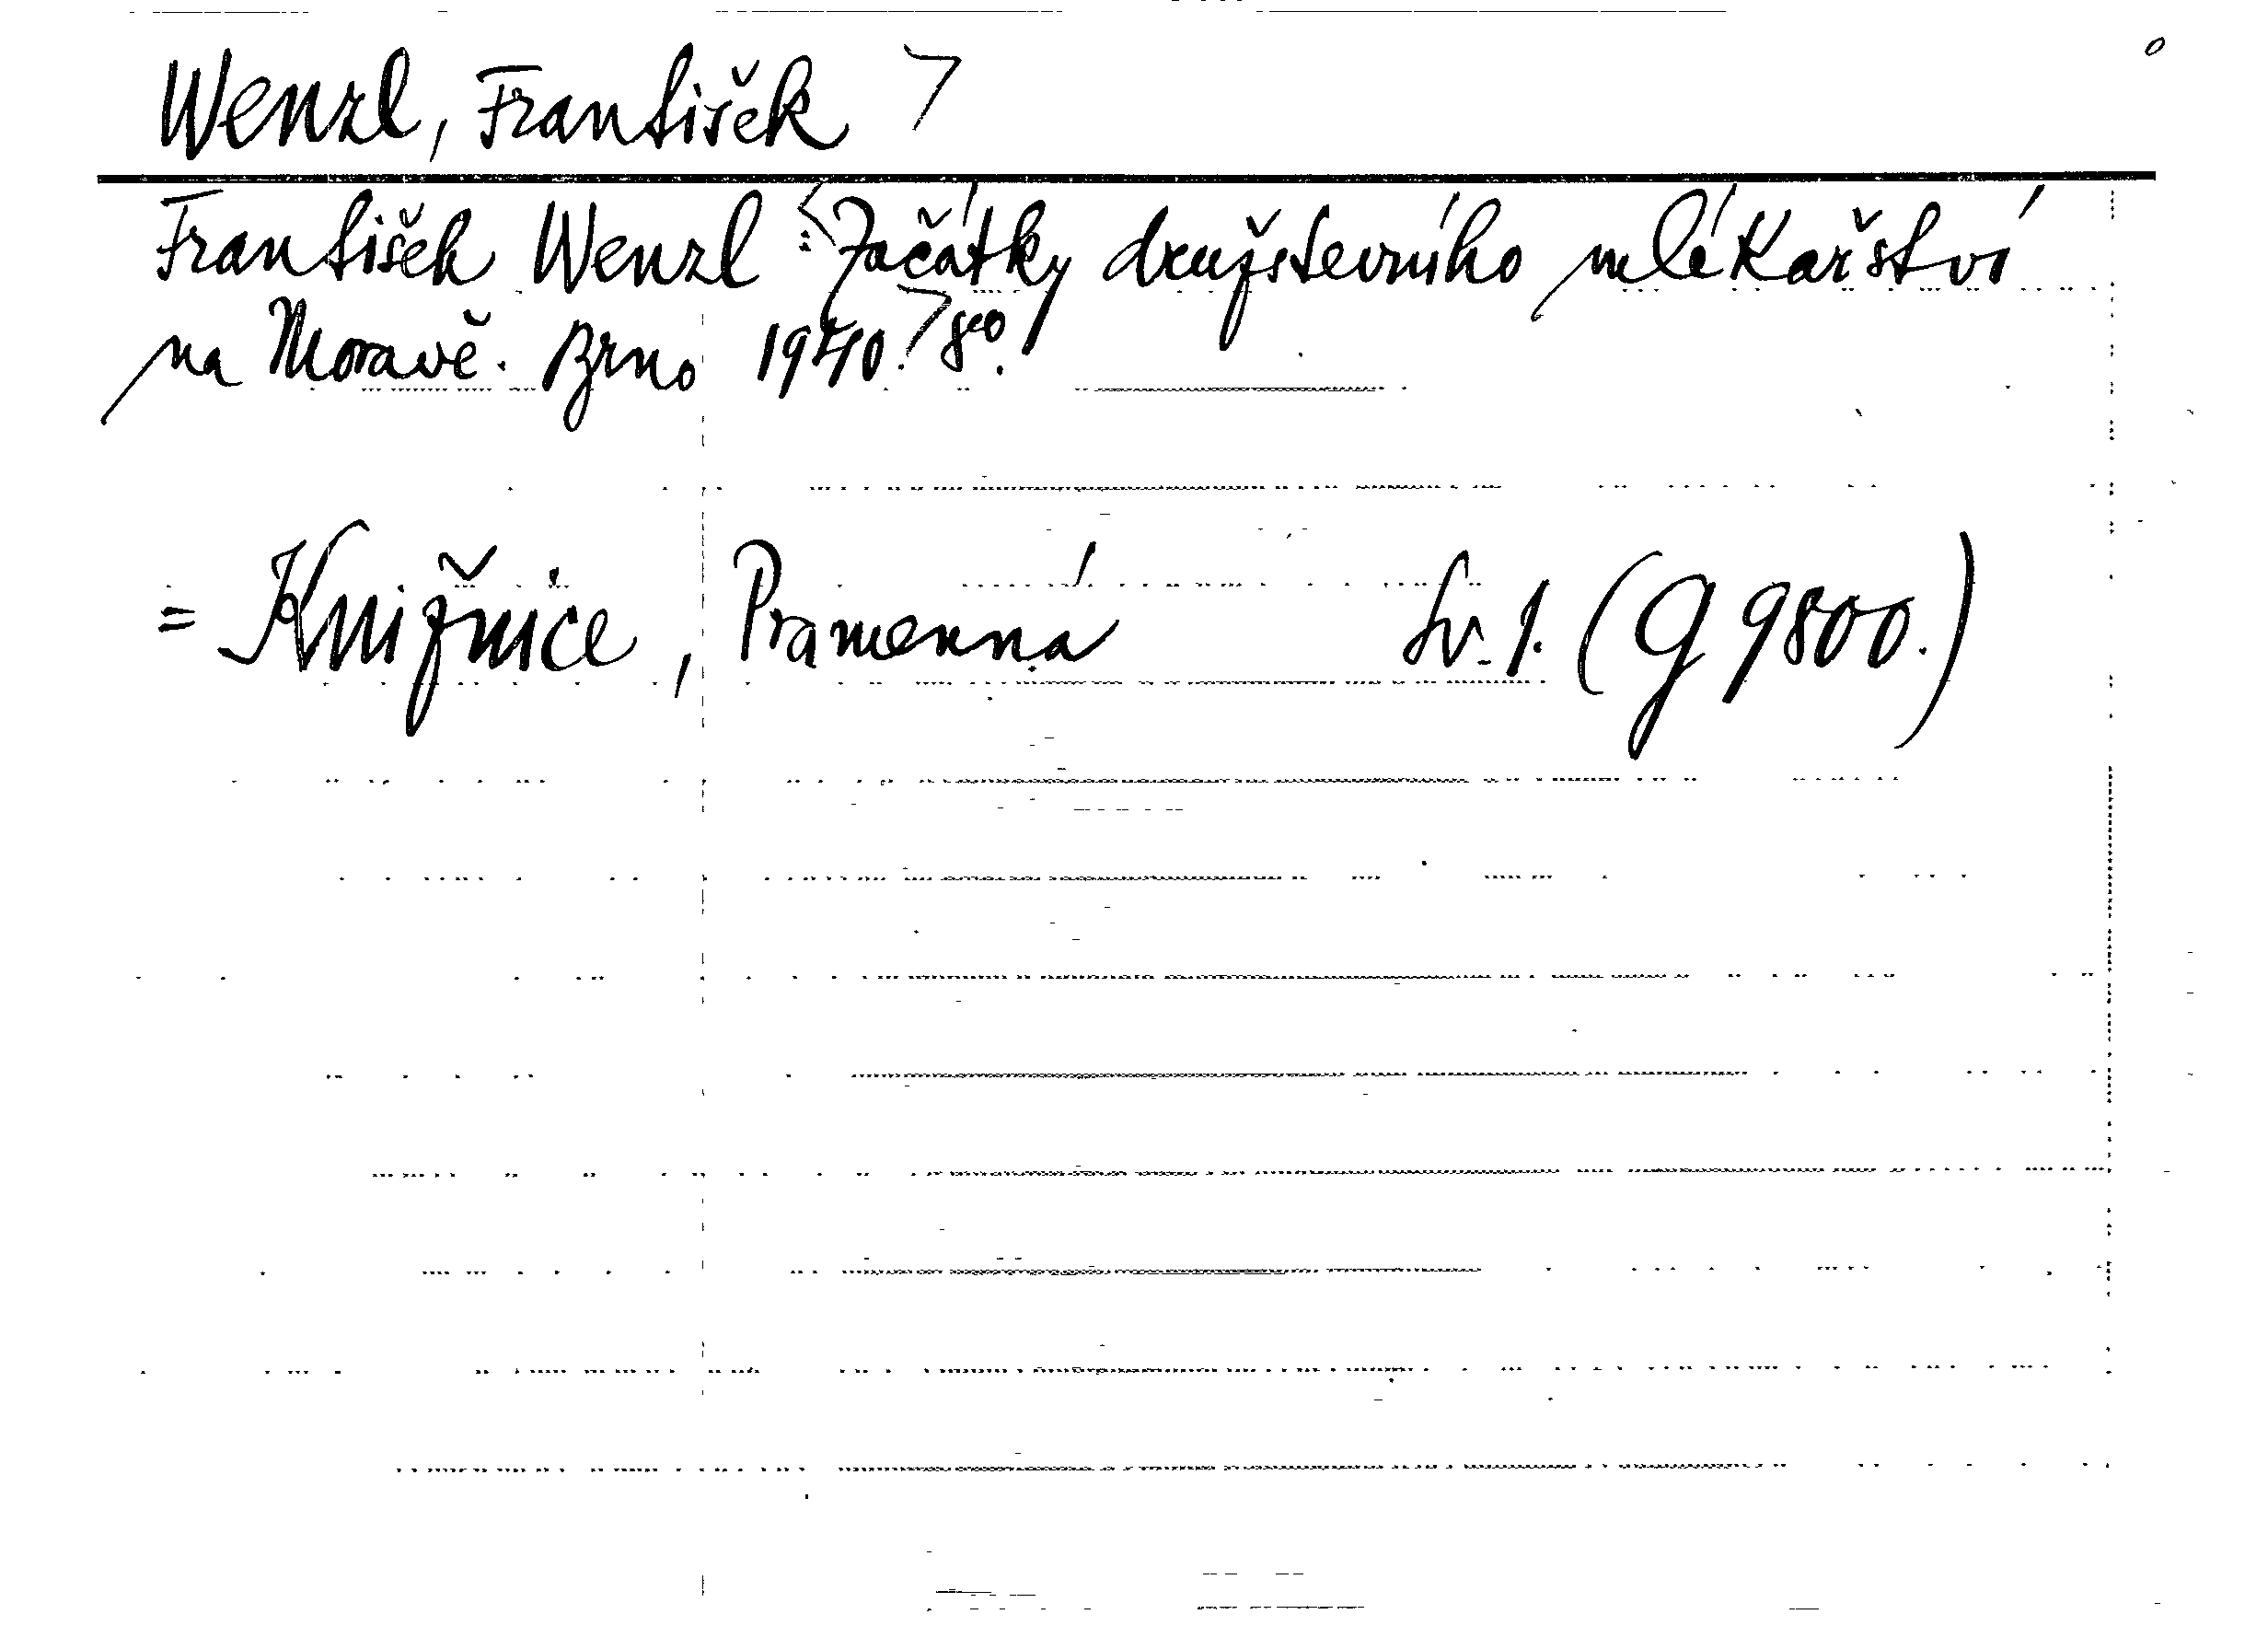 Wenzl, František
František Wenzl: Začátky družstevního mlékařství
na Moravě. Brno 1940. 8°.
= Knižnice, Pramenná Sv. 1. (G 9800.)